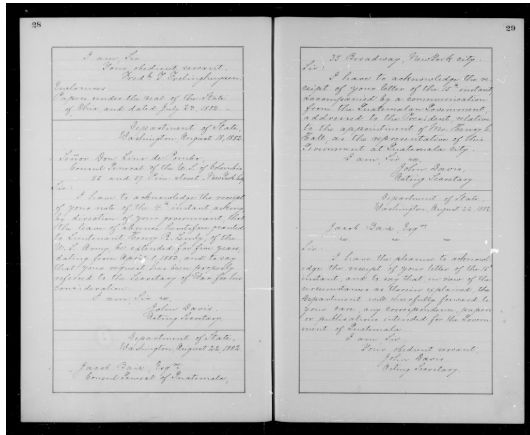 28
I am, Sir
Your obedient servant,
Fredk T. Frelinghuysen
Enclosures
Papers under the seal of the State
of Ohio, and dated July 22, 1882.
Department of State,
Washington, August 18, 1882.
Señor Don Lino de Pombo,
Consul General of the U.S. of Colombia
Sir:
I have to acknowledge the receipt
of your note of the instant asking
by direction of your government, that
the leave of absence heretofore granted
to Lieutenant Henry R. Lemly, of the
U.S. Army be extended for five years,
dating from April 1, 1882, and to say
that your request has been properly
referred to the Secretary of War for his
consideration.
I am, Sir
John Davis,
Acting Secretary.
Department of State,
Washington, August 22, 1882.
Jacob Baiz Esqre
Consul General of Guatemala,
29
35 Broadway, New York city.
Sir:
I have to acknowledge the re-
ceipt of your letter of the 15th instant
accompanied by a communication
from the Guatemalan Government,
addressed to the President, relative
to the appointment of Mr. Henry C.
Hall, as the representative of this
Government at Guatemala city.
I am, Sir
John Davis
Acting Secretary
Department of State
Washington, August 22, 1882.
Jacob Baiz Esqre
Sir:
I have the pleasure to acknowl-
edge the receipt of your letter of the
instant, and to say that in view of the
circumstances as therein explained the
Department will cheerfully forward to
your care, any correspondence, papers
or publications intended for the Govern-
ment of Guatemala
I am Sir
Your obedient servant,
John Davis
Acting Secretary